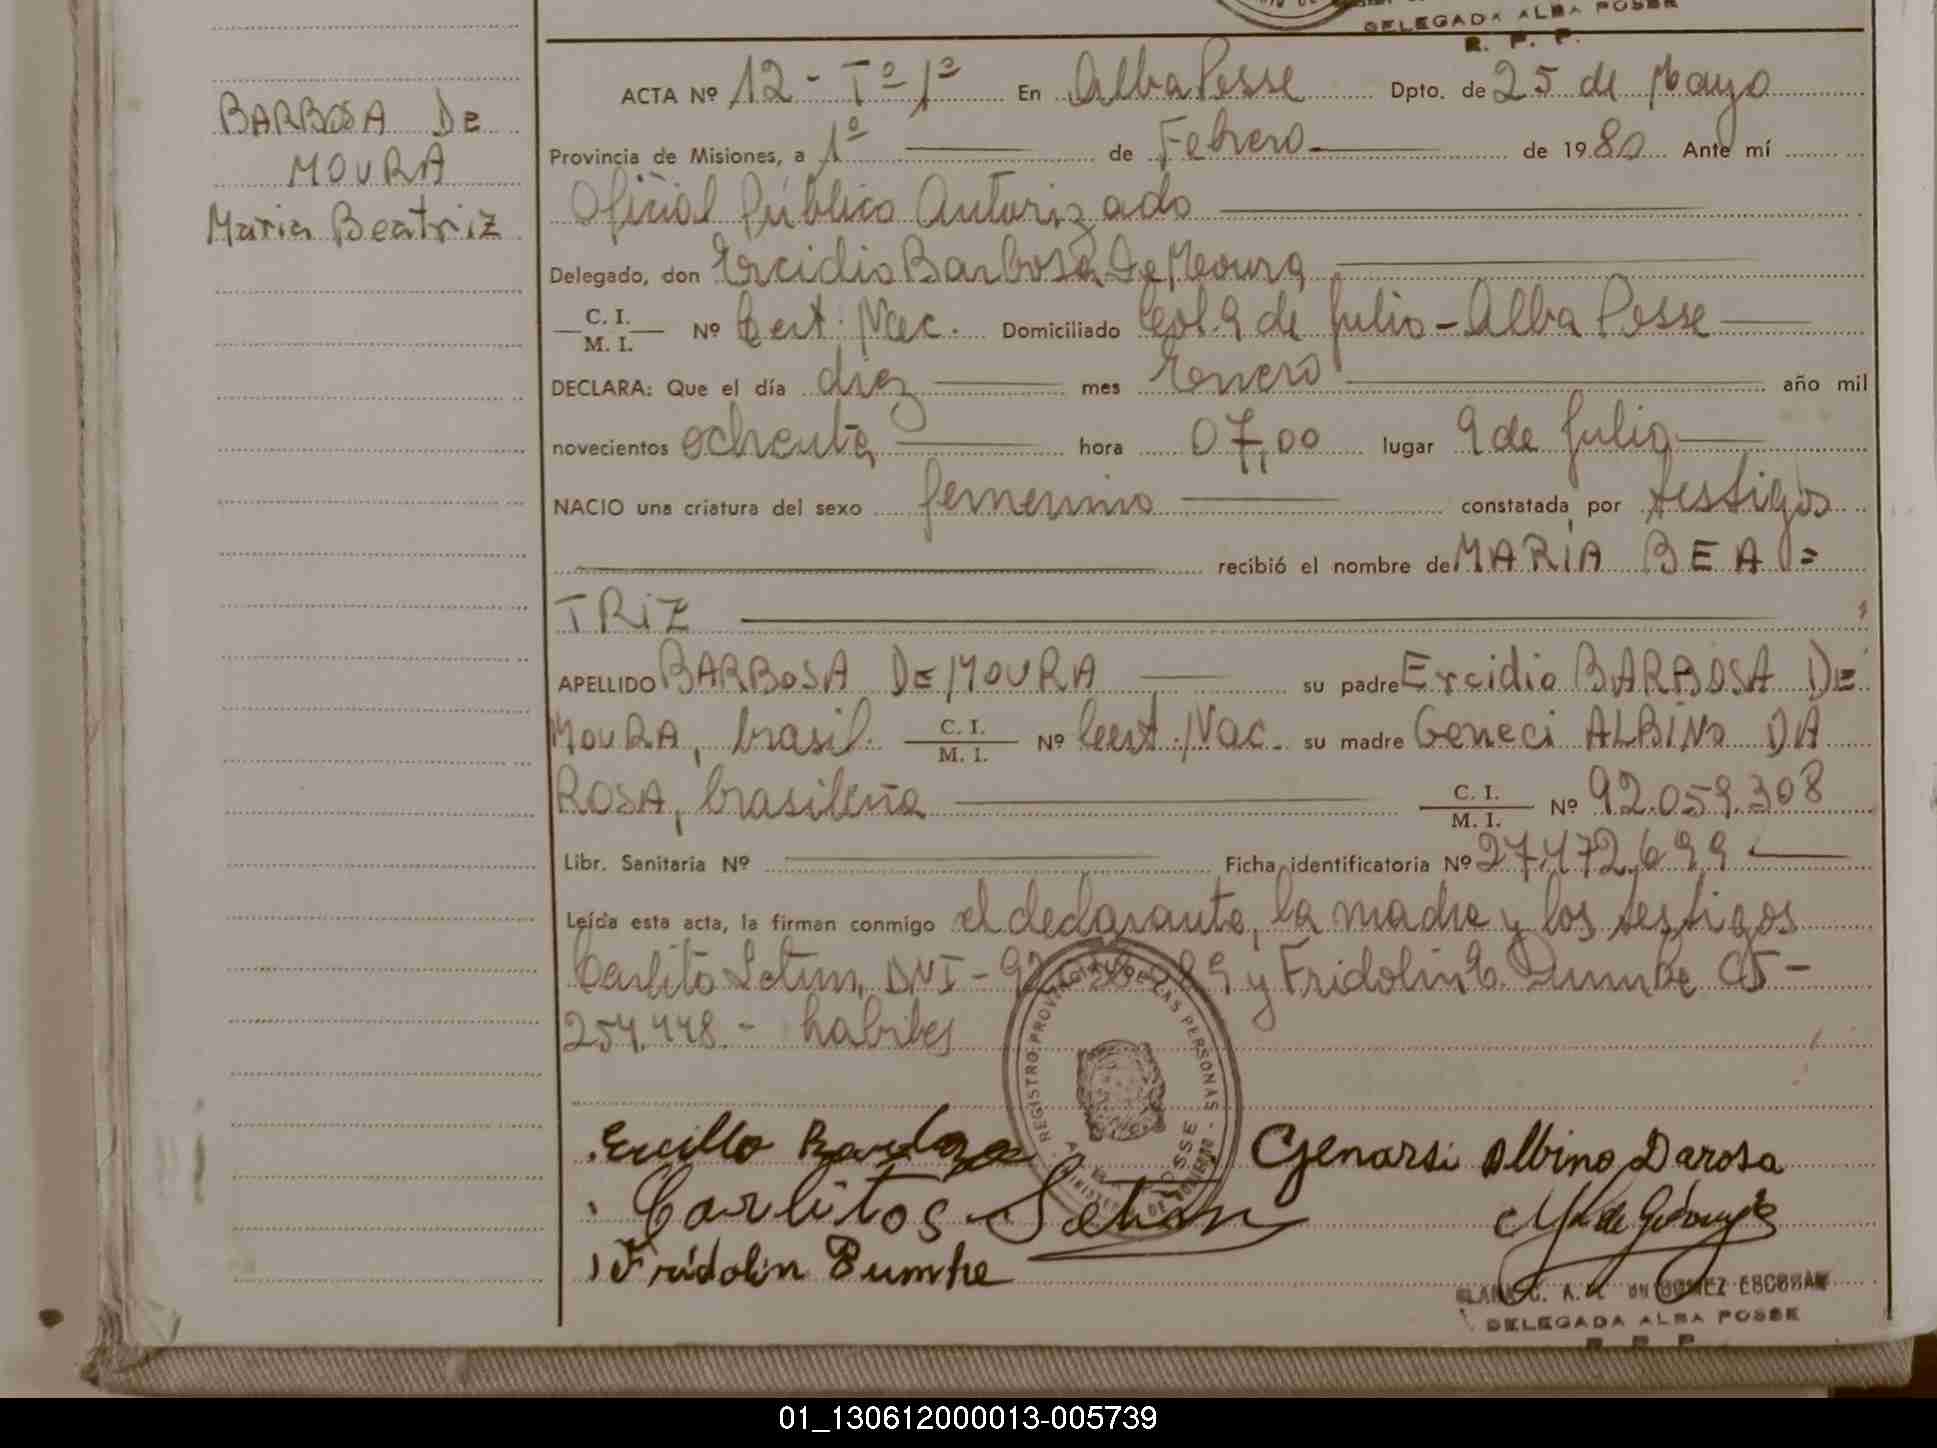 DELEGADA ALBA POSSE
R. P. P.
BARBOSA DE
MOURA
Maria Beatriz
ACTA Nº 12 - Tº 1º En Alba Posse Dpto. de 25 de Mayo
Provincia de Misiones, a 1º de Febrero de 1980 Ante mí
Oficial Público Autorizado
Delegado, don Ercidio Barbosa De Moura
C. I. M. I. Nº Cert. Nac. Domiciliado Col. 9 de Julio - Alba Posse
DECLARA: Que el día diez mes Enero año mil
novecientos ochenta hora 07,00 lugar 9 de Julio
NACIO una criatura del sexo femenino constatada por testigos
recibió el nombre de MARÍA BEA=
TRIZ
APELLIDO BARBOSA DE MOURA su padre Ercidio BARBOSA DE
MOURA, brasil. C. I. M. I. Nº Cert. Nac. su madre Geneci ALBINO DA
ROSA, brasileña C. I. M. I. Nº 92.059.308
Libr. Sanitaria Nº Ficha identificatoria Nº 27.472.699
Leída esta acta, la firman conmigo el declarante, la madre y los testigos
Carlito DNI - y Fridolin CI -
254.448.- habiles
REGISTRO PROVINCIAL DE LAS PERSONAS
POSSE
Genarsi Albino Darosa
Carlitos
Fridolin Pumhe
DELEGADA ALBA POSSE
R. P. P.
01_130612000013-005739